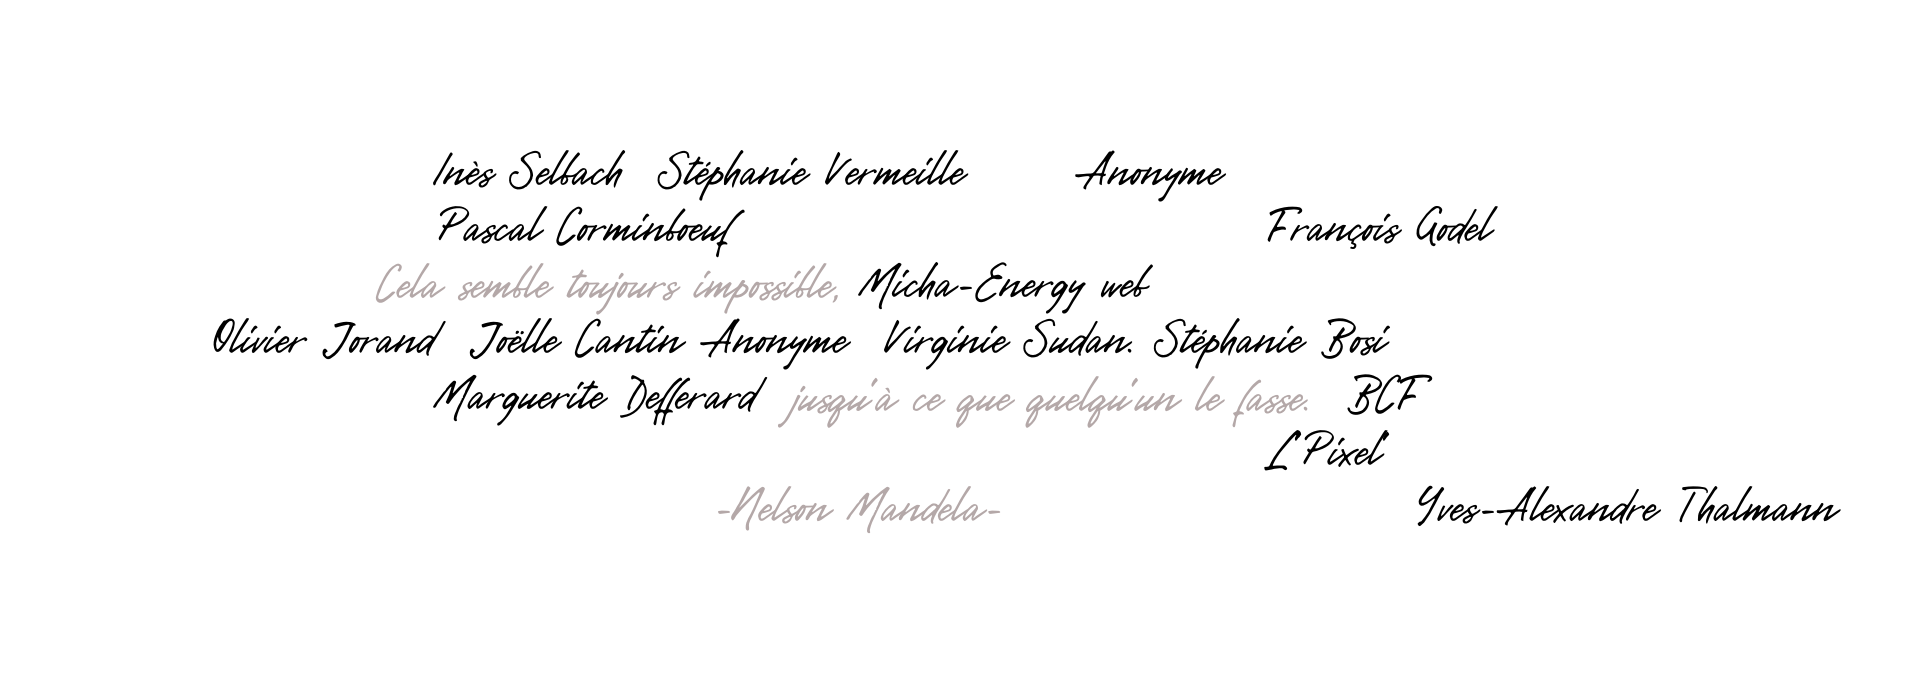 Inès Selbach Stéphanie Vermeille Anonyme
Pascal Corminboeuf François Godel
Cela semble toujours impossible, Micha-Energy web
Olivier Jorand Joëlle Cantin Anonyme Virginie Sudan. Stéphanie Bosi
Marguerite Defferard jusqu'à ce que quelqu'un le fasse. BCF
L'Pixel
-Nelson Mandela- Yves-Alexandre Thalmann